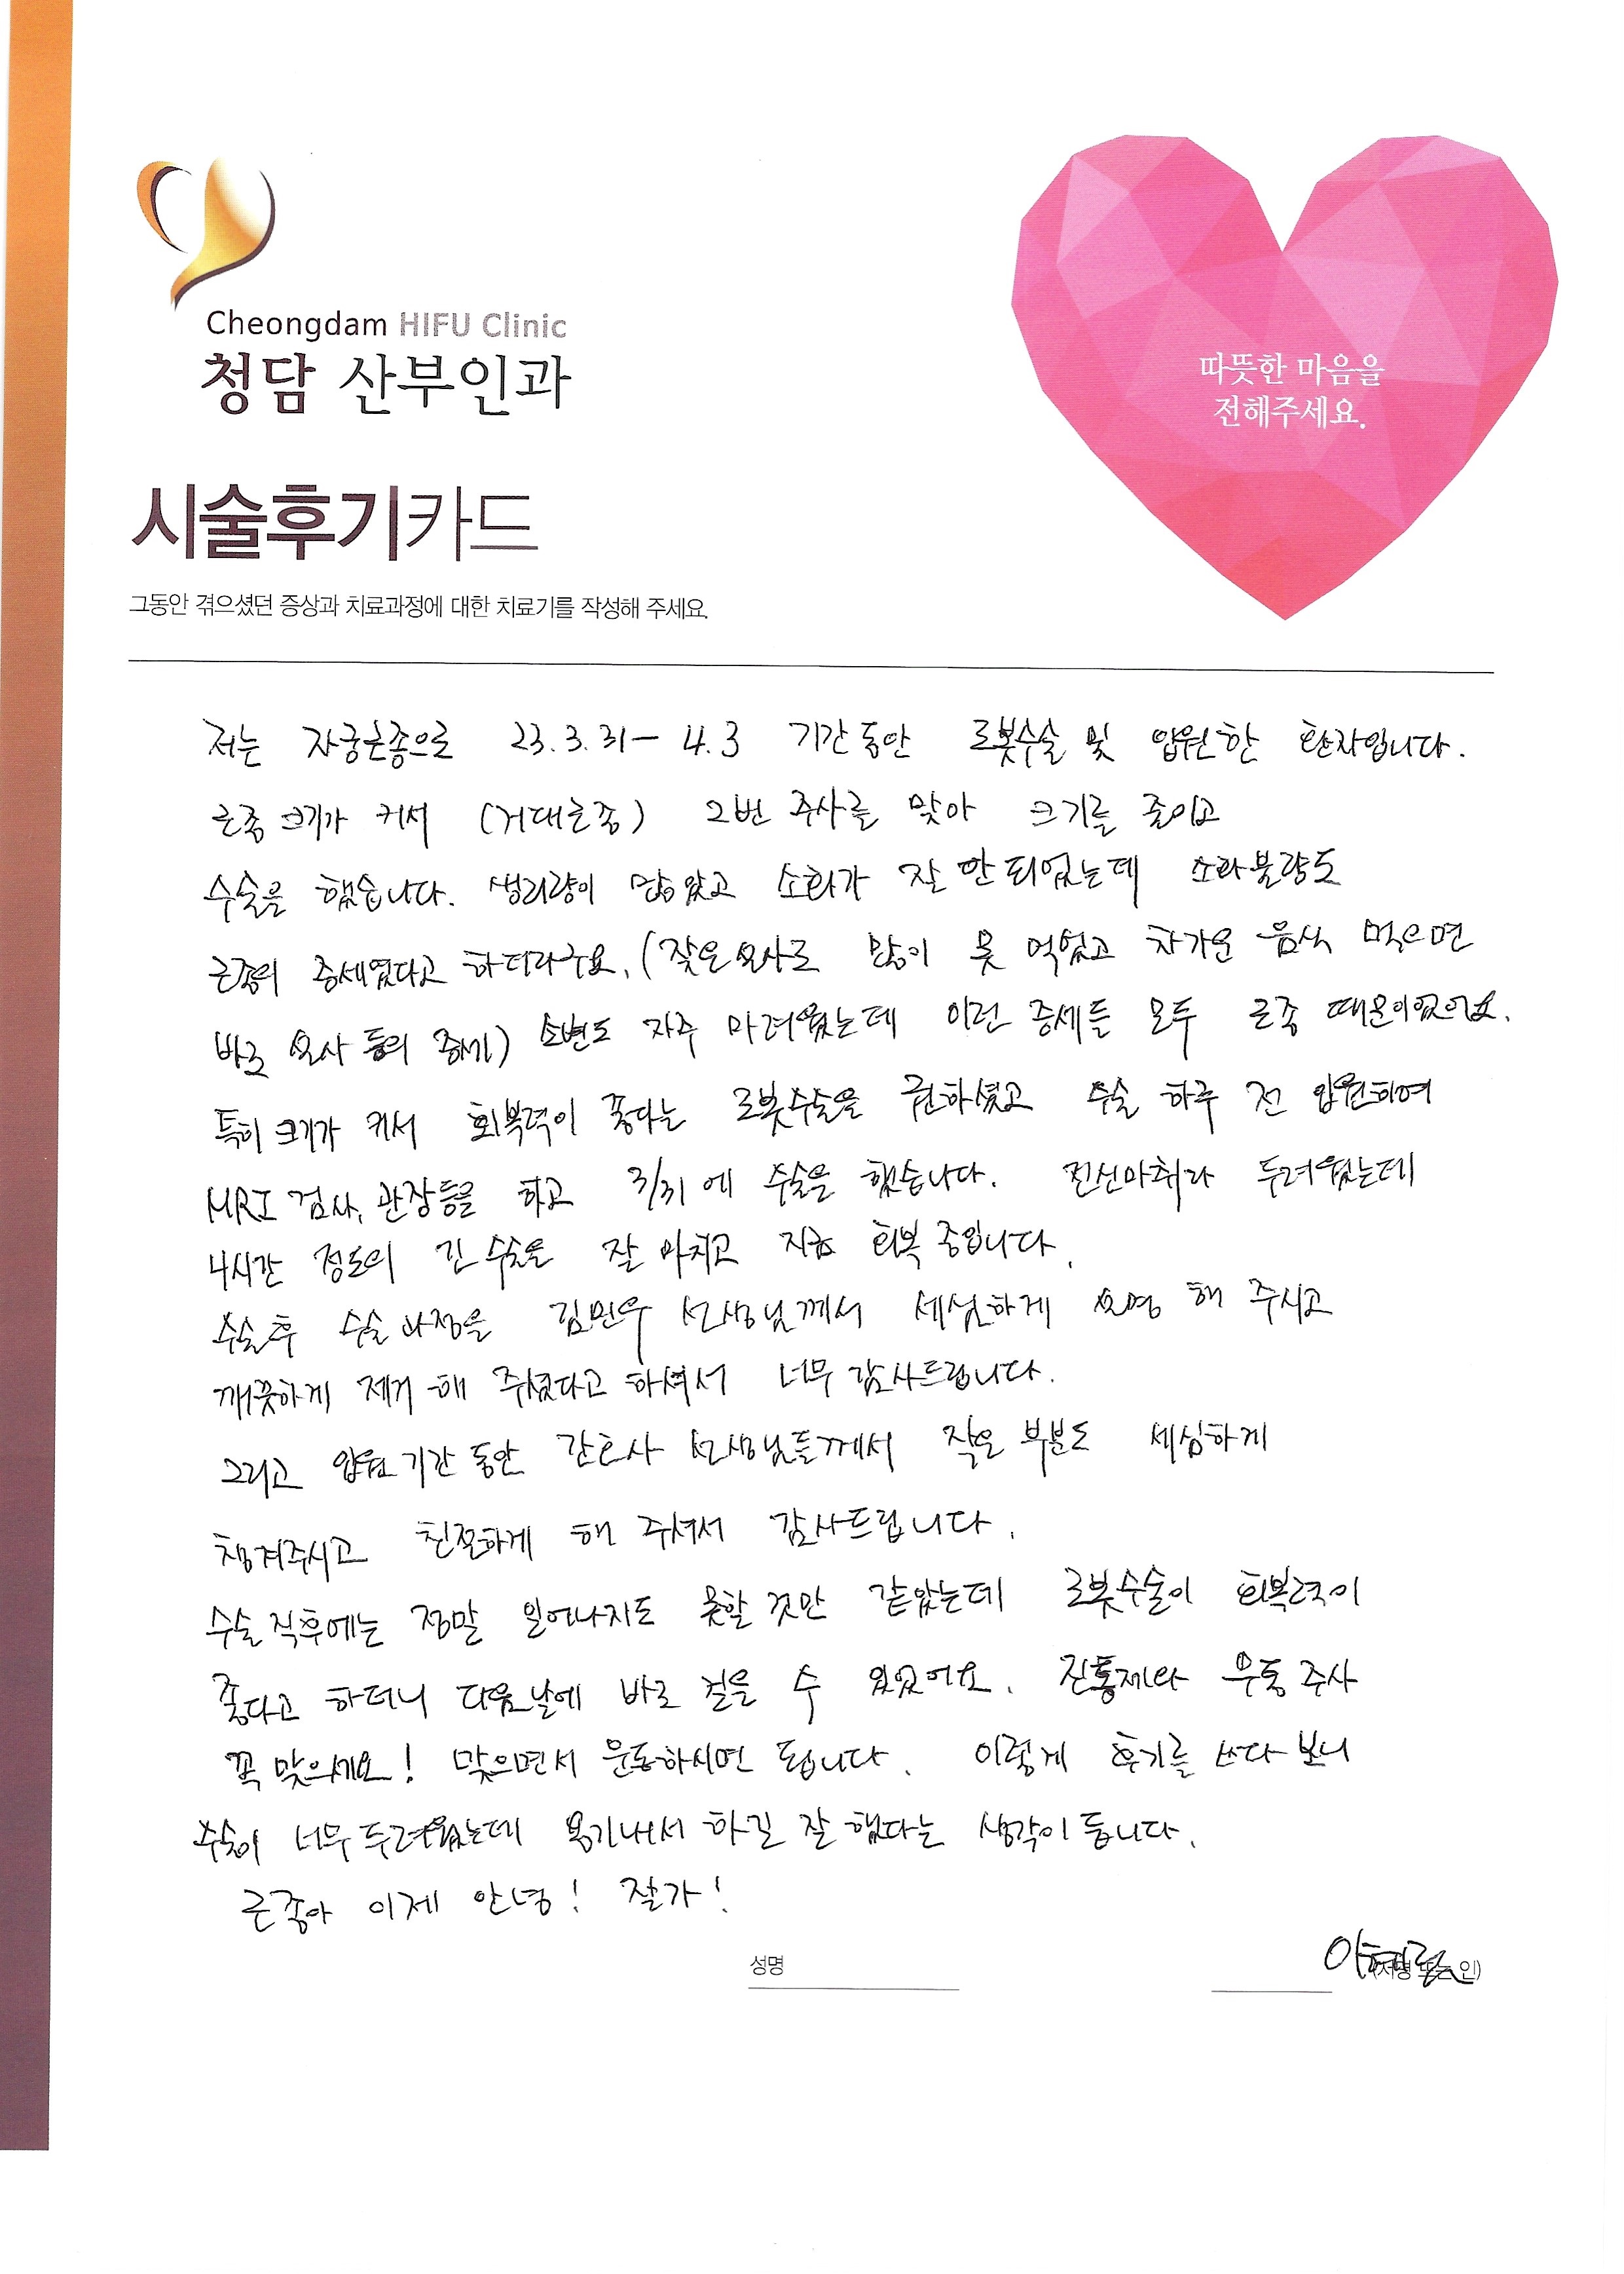 Cheongdam HIFU Clinic
청담 산부인과
따뜻한 마음을
전해주세요.
시술후기카드
그동안 겪으셨던 증상과 치료과정에 대한 치료기를 작성해 주세요.
저는 자궁근종으로 23.3.31 - 4.3 기간동안 로봇수술 및 입원한 환자입니다.
근종 크기가 커서 (거대근종) 2번 주사를 맞아 크기를 줄이고
수술을 했습니다. 생리량이 많았고 소화가 잘 안되었는데 소화불량도
근종의 증세였다고 하더라구요. (잦은 요사로 많이 못 먹었고 차가운 음식 먹으면
바로 요사 등의 증세) 소변도 자주 마려웠는데 이런 증세들 모두 근종 때문이었어요.
특히 크기가 커서 회복력이 좋다는 로봇수술을 권하셨고 수술 하루 전 입원하여
MRI 검사, 관장등을 하고 3/31에 수술을 했습니다. 전신마취라 두려웠는데
4시간 정도의 긴 수술을 잘 마치고 지금 회복 중입니다.
수술후 수술과정을 김민우 선생님께서 세심하게 설명 해 주시고
깨끗하게 제거 해 주셨다고 하셔서 너무 감사드립니다.
그리고 입원기간 동안 간호사 선생님들께서 작은 부분도 세심하게
챙겨주시고 친절하게 해 주셔서 감사드립니다.
수술 직후에는 정말 일어나지도 못할 것만 같았는데 로봇수술이 회복력이
좋다고 하더니 다음날에 바로 걸을 수 있었어요. 진통제와 무통 주사
꼭 맞으세요! 맞으면서 운동하시면 됩니다. 이렇게 후기를 쓰다 보니
수술이 너무 두려웠는데 용기내서 하길 잘 했다는 생각이 듭니다.
근종아 이제 안녕! 잘가!
성명 (서명 또는 인)